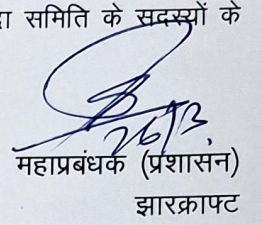 समिति के सदस्यों के
26/3
महाप्रबंधक (प्रशासन)
झारक्राफ्ट